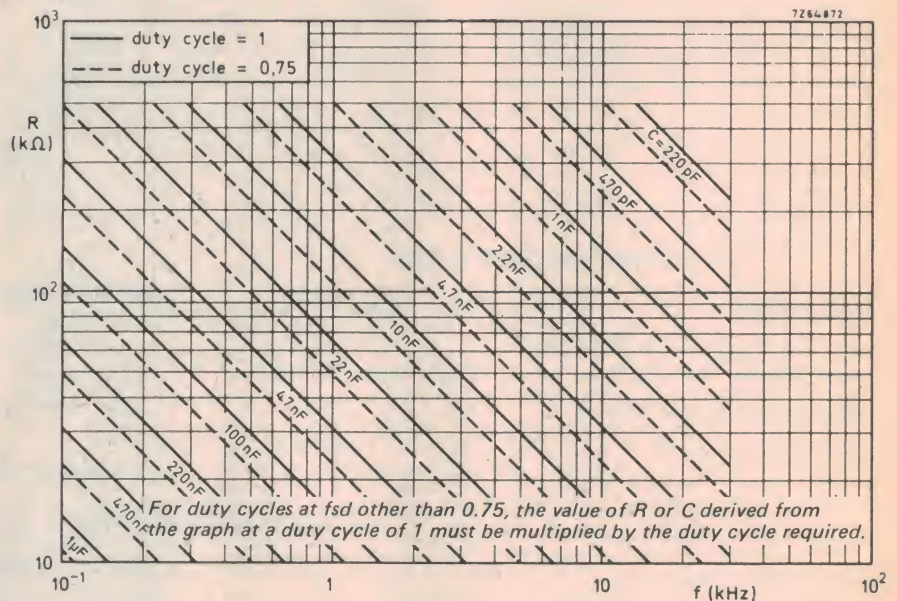 7Z64872
10³
duty cycle = 1
duty cycle = 0,75
R
(kΩ)
C=220pF
470pF
1nF
2.2nF
10²
4.7nF
10nF
22nF
47nF
100nF
220nF
470nF
1μF
For duty cycles at fsd other than 0.75, the value of R or C derived from
the graph at a duty cycle of 1 must be multiplied by the duty cycle required.
10
10⁻¹
1
10
f (kHz)
10²